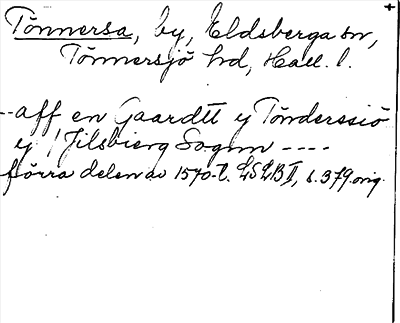 Tönnersa, by, Eldsberga sn,
Tönnersjö hd, Hall. l.
-- aff en Gaardtt y Tönderssiö
y ! Jilsbierg Sognn ----
förra delen av 1570-t. LSLB II, s. 379. orig.